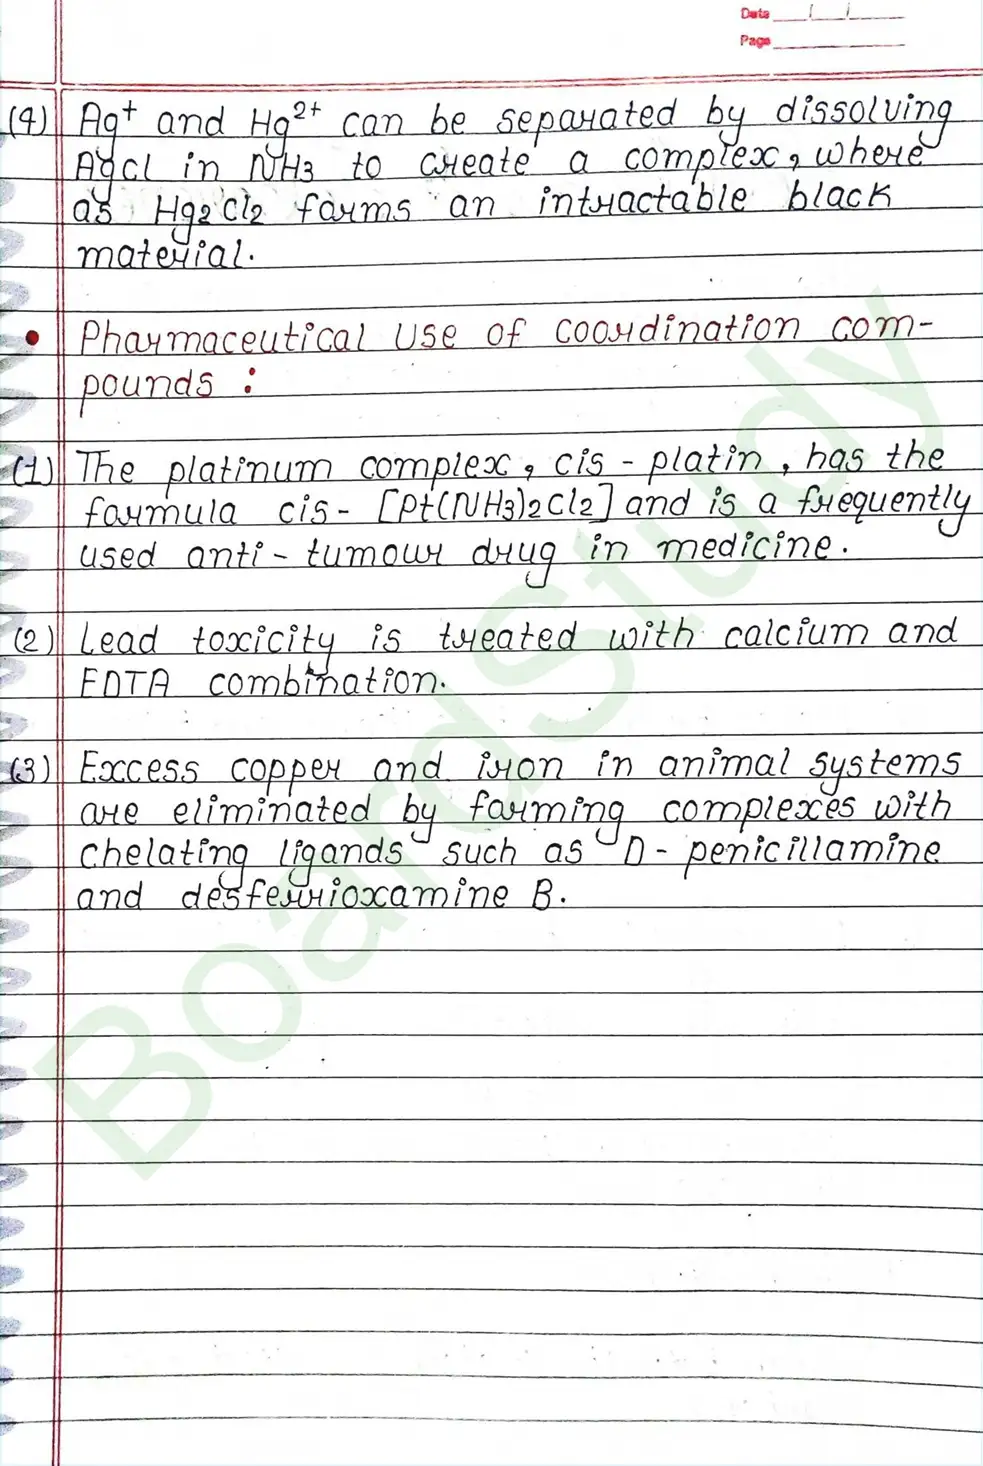 Data / /
Page
(4) Ag⁺ and Hg²⁺ can be separated by dissolving
AgCl in NH3 to create a complex, where
as Hg2Cl2 forms an intractable black
material.
• Pharmaceutical use of coordination com-
pounds :
(1) The platinum complex, cis - platin, has the
formula cis - [Pt(NH3)2Cl2] and is a frequently
used anti - tumour drug in medicine.
(2) Lead toxicity is treated with calcium and
EDTA combination.
(3) Excess copper and iron in animal systems
are eliminated by forming complexes with
chelating ligands such as D - penicillamine
and desferrioxamine B.
BoardStudy